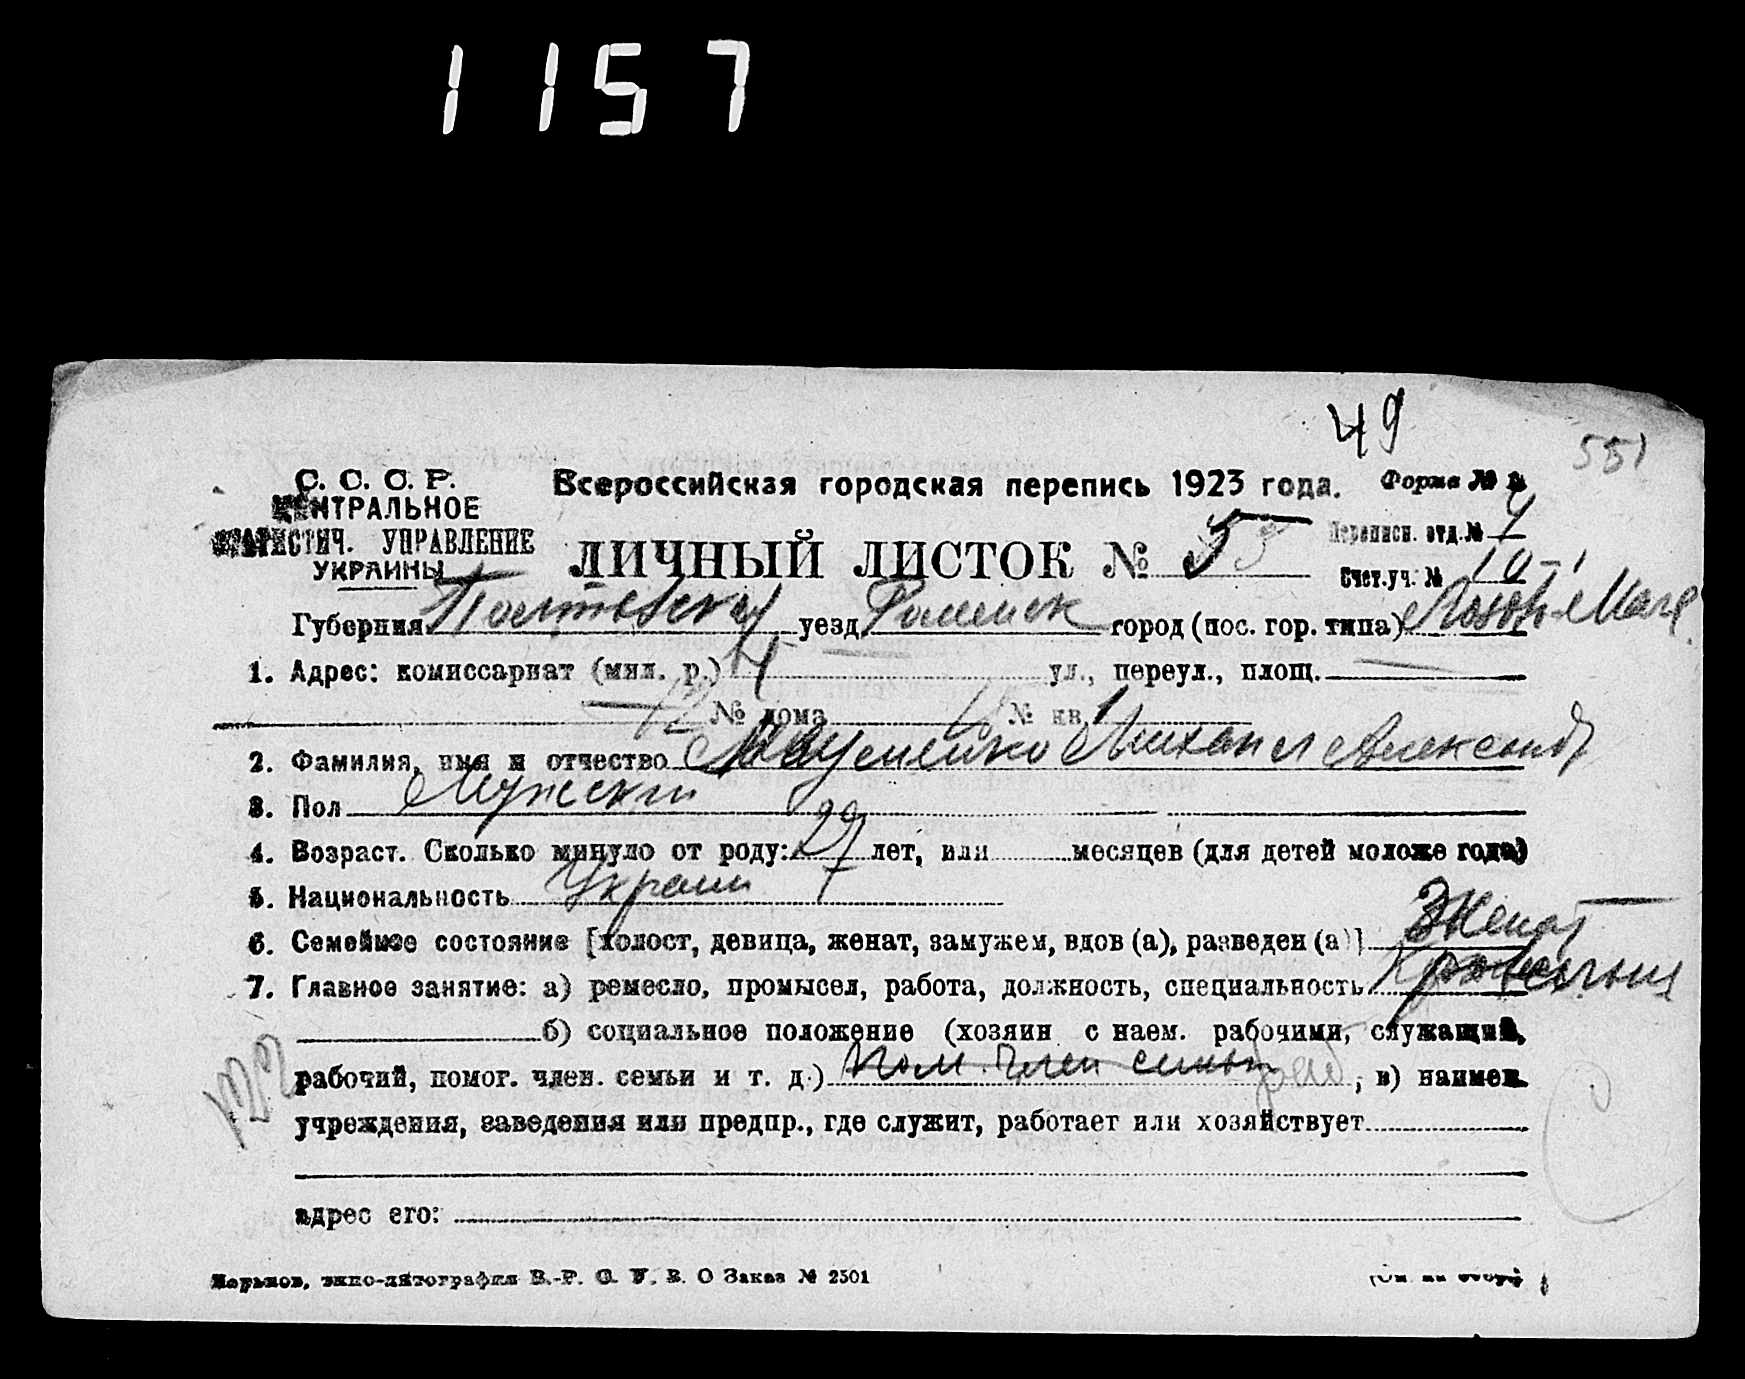 1157
49
551
С. С. С. Р.
ЦЕНТРАЛЬНОЕ
СТАТИСТИЧ. УПРАВЛЕНИЕ
УКРАИНЫ
Всероссийская городская перепись 1923 года.
Форма № 2
Переписн. отд. № 4
ЛИЧНЫЙ ЛИСТОК № 55
Счет. уч. № 10-1
Губерния Полтавская уезд Роменск город (пос. гор. типа)
1. Адрес: комиссариат (мил. р.) 4 ул., переул., площ.
12 № дома № кв. 1
2. Фамилия, имя и отчество Михаил Александ
3. Пол Мужской
4. Возраст. Сколько минуло от роду: 29 лет, или месяцев (для детей моложе года)
5. Национальность Украин
6. Семейное состояние [холост, девица, женат, замужем, вдов (а), разведен (а)] Женат
7. Главное занятие: а) ремесло, промысел, работа, должность, специальность
б) социальное положение (хозяин с наем. рабочими, служащий,
рабочий, помог. член. семьи и т. д.) пом. член семьи раб ; в) наимен.
учреждения, заведения или предпр., где служит, работает или хозяйствует
адрес его:
122
Харьков, типо-литография В.-Р. С. У. В. О Заказ № 2501